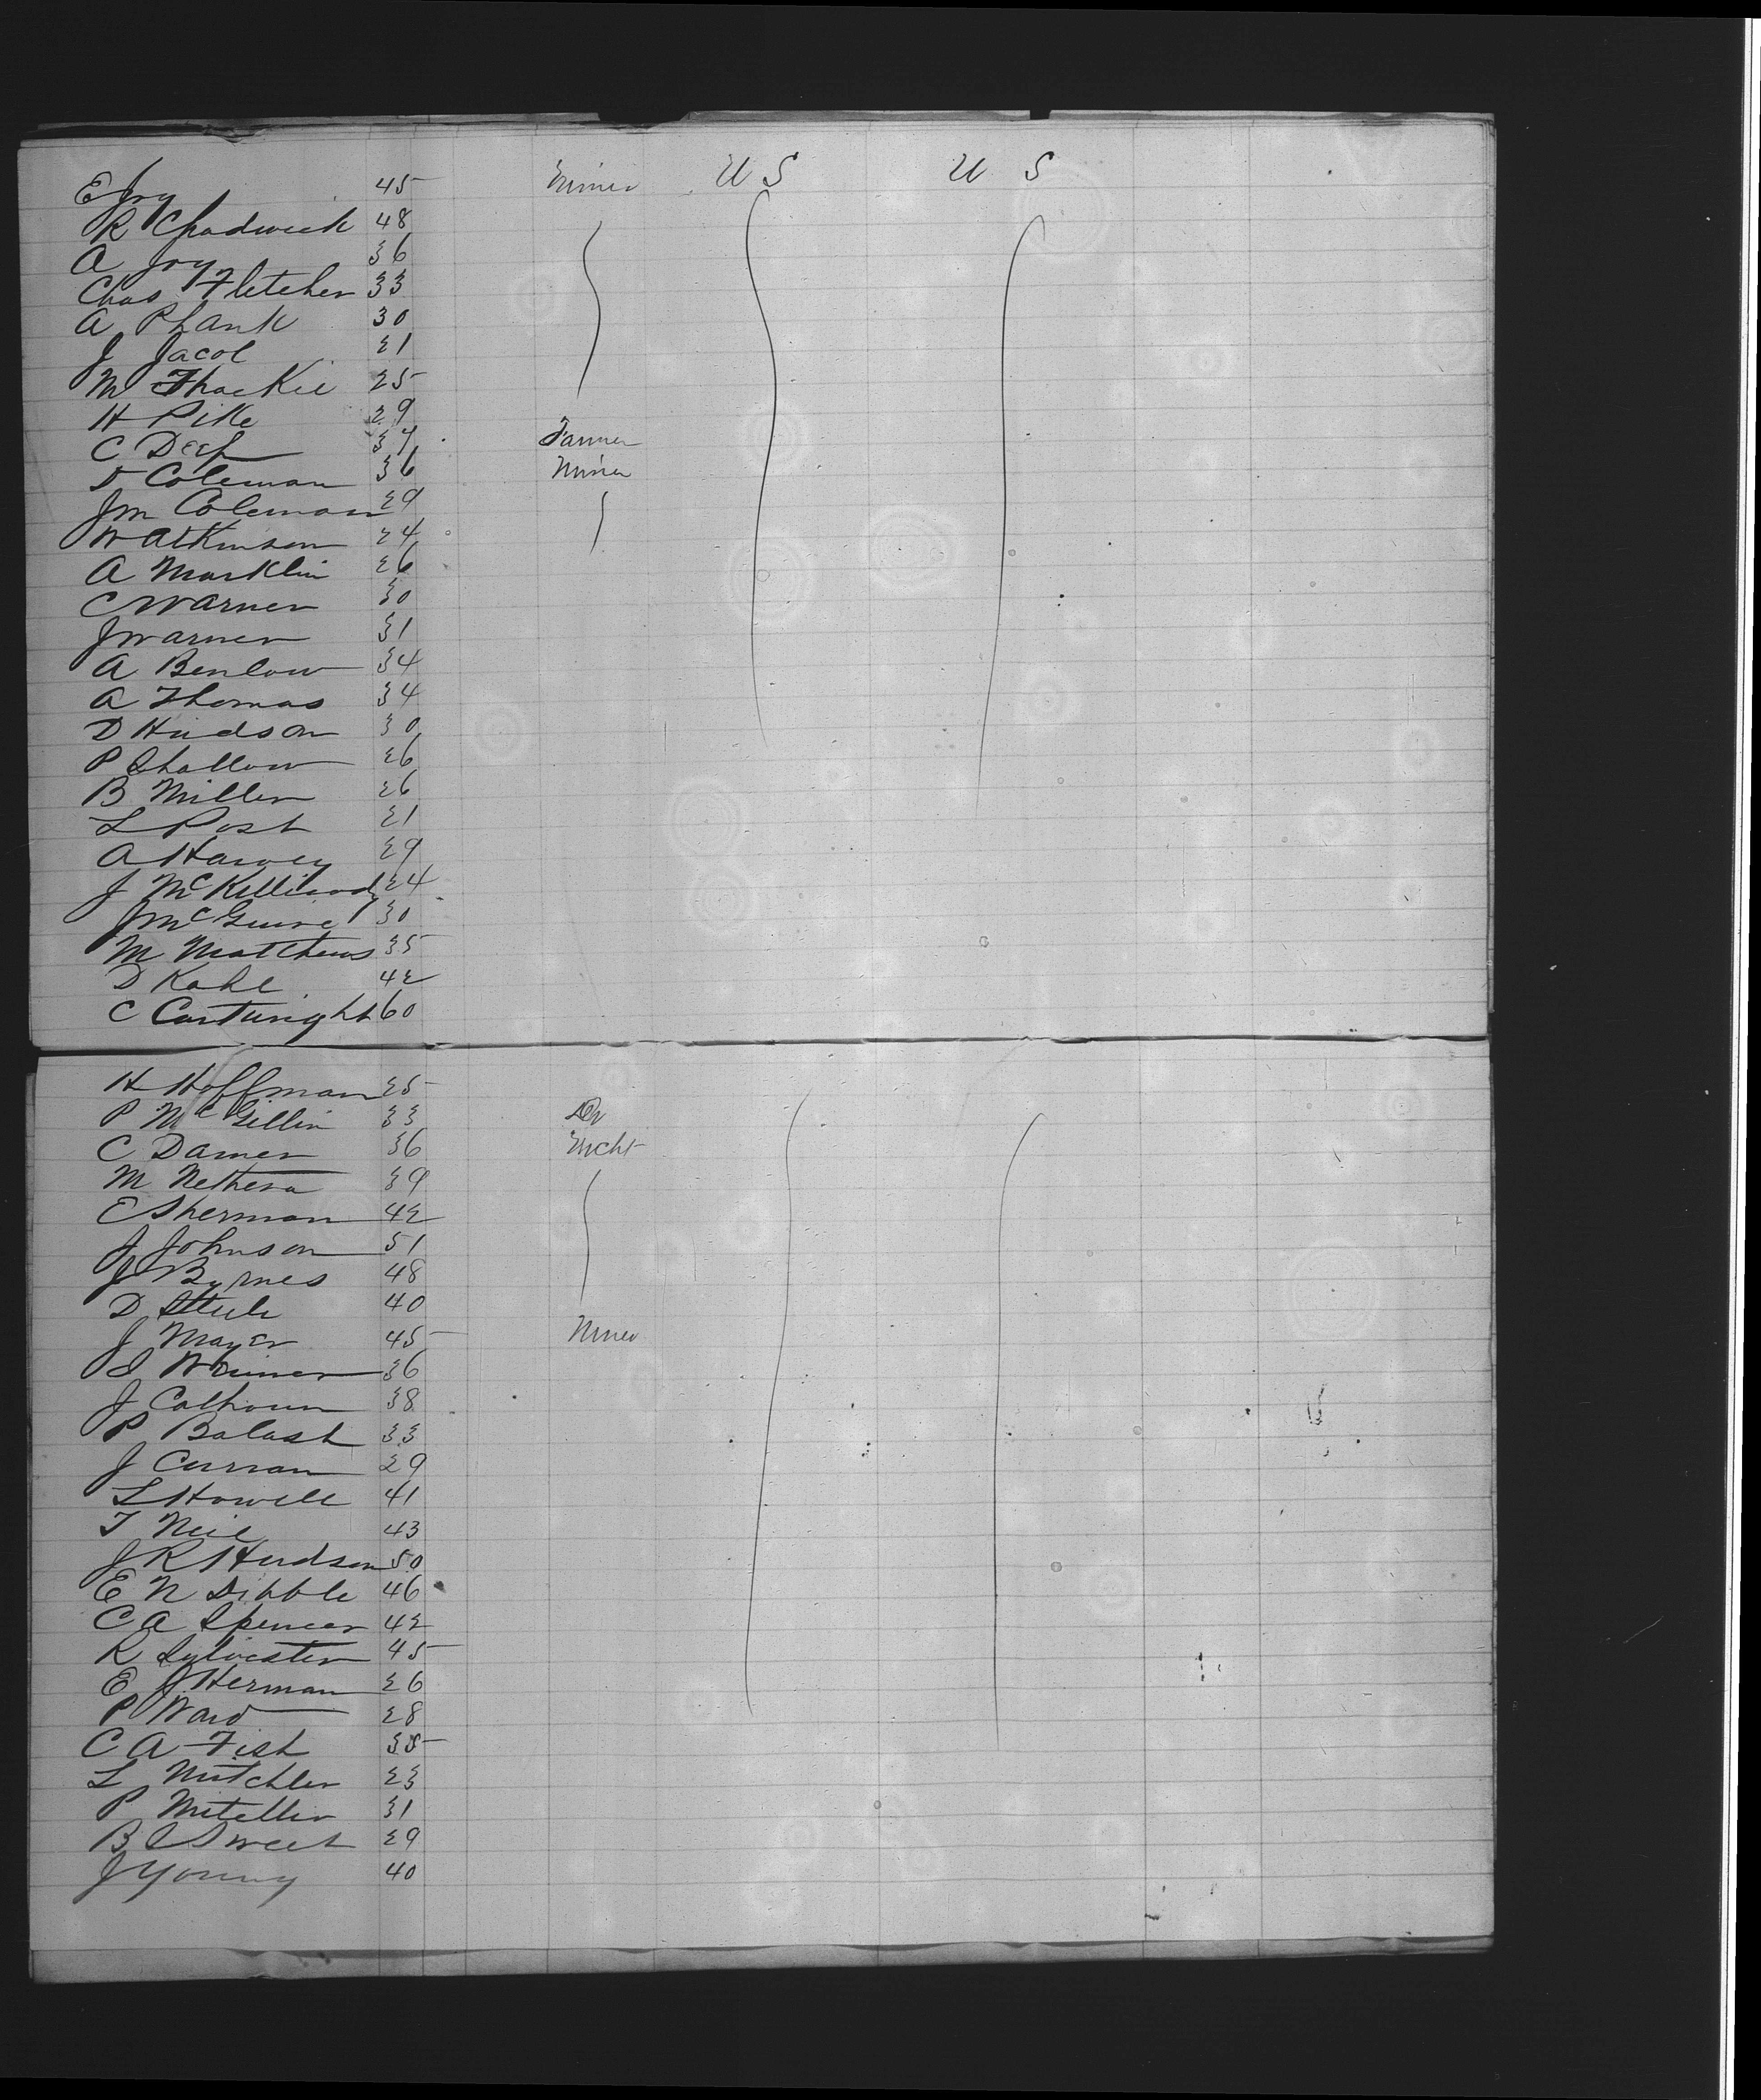 E Joy 45 Miner U S U S
R Chadwick 48
A Joy 36
Chas Fletcher 33
A Phank 30
J Jacol 21
M Thackie 25
H Pike 29
C Deef 37 Farmer
D Coleman 36 Miner
Jm Coleman 29
W Atkinson 24
A Marklin 26
C Warner 30
J Warner 31
A Benlow 34
A Thomas 34
D Hudson 30
P Shallow 26
B Miller 26
L Post 21
A Harvey 29
J 24
J McGuire 30
M Matthews 35
D Kahl 42
C Cartwright 60
H Hoffman 25
P McGillin 33 Dr
C Damer 36 Mcht
M Nethera 39
E Sherman 42
J Johnson 51
J Byrnes 48
D Steele 40
J Mayer 45 Miner
36
J Calhoun 38
P Balash 33
J Curran 29
L Howell 41
T Neil 43
J R Hudson 50
E N Dibble 46
C A Spencer 42
R Sylvester 45
E J Herman 26
P Ward 28
C A Fish 35
L Mitchler 23
P Miteller 31
B C Sweet 29
J Young 40